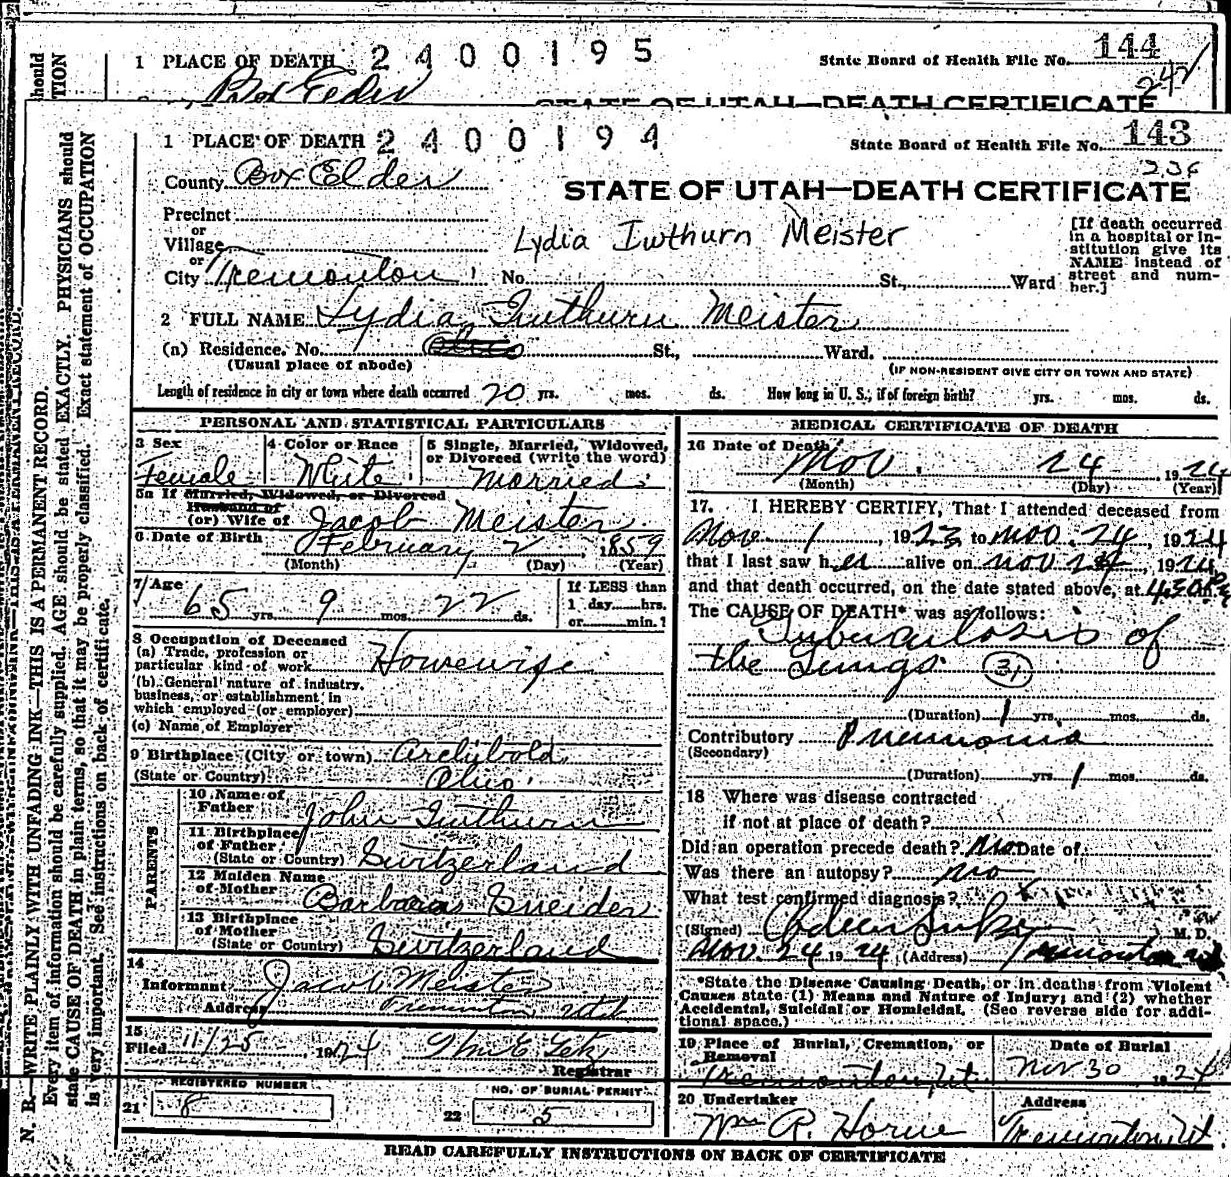 1 PLACE OF DEATH 2400195
State Board of Health File No. 144
242
Box Elder
STATE OF UTAH—DEATH CERTIFICATE
1 PLACE OF DEATH 2400194
State Board of Health File No. 143
236
County Box Elder
STATE OF UTAH—DEATH CERTIFICATE
Precinct
or
Village
or
City Tremonton
No. St., Ward
Lydia Iwthurn Meister
[If death occurred
in a hospital or in-
stitution give its
NAME instead of
street and num-
ber.]
2 FULL NAME Lydia Iuthurn Meister
(a) Residence. No. St., Ward.
(Usual place of abode)
(IF NON-RESIDENT GIVE CITY OR TOWN AND STATE)
Length of residence in city or town where death occurred 20 yrs. mos. ds. How long in U. S., if of foreign birth? yrs. mos. ds.
PERSONAL AND STATISTICAL PARTICULARS
3 Sex
Female
4 Color or Race
White
5 Single, Married, Widowed,
or Divorced (write the word)
Married
5a If Married, Widowed, or Divorced
Husband of
(or) Wife of Jacob Meister
6 Date of Birth February 2, 1859
(Month) (Day) (Year)
7 Age 65 yrs. 9 mos. 22 ds.
If LESS than
1 day......hrs.
or......min.?
8 Occupation of Deceased
(a) Trade, profession or
particular kind of work Housewife
(b) General nature of industry,
business, or establishment in
which employed (or employer)
(c) Name of Employer
9 Birthplace (City or town) Archbold
(State or Country) Ohio
PARENTS
10 Name of
Father John Iuthurn
11 Birthplace
of Father
(State or Country) Switzerland
12 Maiden Name
of Mother Barbara Sneider
13 Birthplace
of Mother
(State or Country) Switzerland
14
Informant Jacob Meister
Address Tremonton Utah
15
Filed 11/25, 1924 Wm E Getz
Registrar
REGISTERED NUMBER
21 8
NO. OF BURIAL PERMIT
22 5
MEDICAL CERTIFICATE OF DEATH
16 Date of Death
Nov. 24 1924
(Month) (Day) (Year)
17. I HEREBY CERTIFY, That I attended deceased from
Nov. 1, 1923 to Nov. 24, 1924
that I last saw her alive on Nov 24, 1924,
and that death occurred, on the date stated above, at 4:30 A m.
The CAUSE OF DEATH* was as follows:
Tuberculosis of
the Lungs. 31
(Duration) 1 yrs. mos. ds.
Contributory Pneumonia
(Secondary)
(Duration) yrs. 1 mos. ds.
18 Where was disease contracted
if not at place of death?
Did an operation precede death? No Date of
Was there an autopsy? No
What test confirmed diagnosis?
(Signed) M. D.
Nov. 24 1924 (Address) Tremonton
*State the Disease Causing Death, or in deaths from Violent
Causes state (1) Means and Nature of Injury; and (2) whether
Accidental, Suicidal or Homicidal. (See reverse side for addi-
tional space.)
19 Place of Burial, Cremation, or
Removal
Tremonton, Ut.
Date of Burial
Nov 30 1924
20 Undertaker
Wm R. Horne
Address
Tremonton Ut
READ CAREFULLY INSTRUCTIONS ON BACK OF CERTIFICATE
N. B.—WRITE PLAINLY WITH UNFADING INK—THIS IS A PERMANENT RECORD.
Every item of information should be carefully supplied. AGE should be stated EXACTLY. PHYSICIANS should
state CAUSE OF DEATH in plain terms, so that it may be properly classified. Exact statement of OCCUPATION
is very important. See instructions on back of certificate.